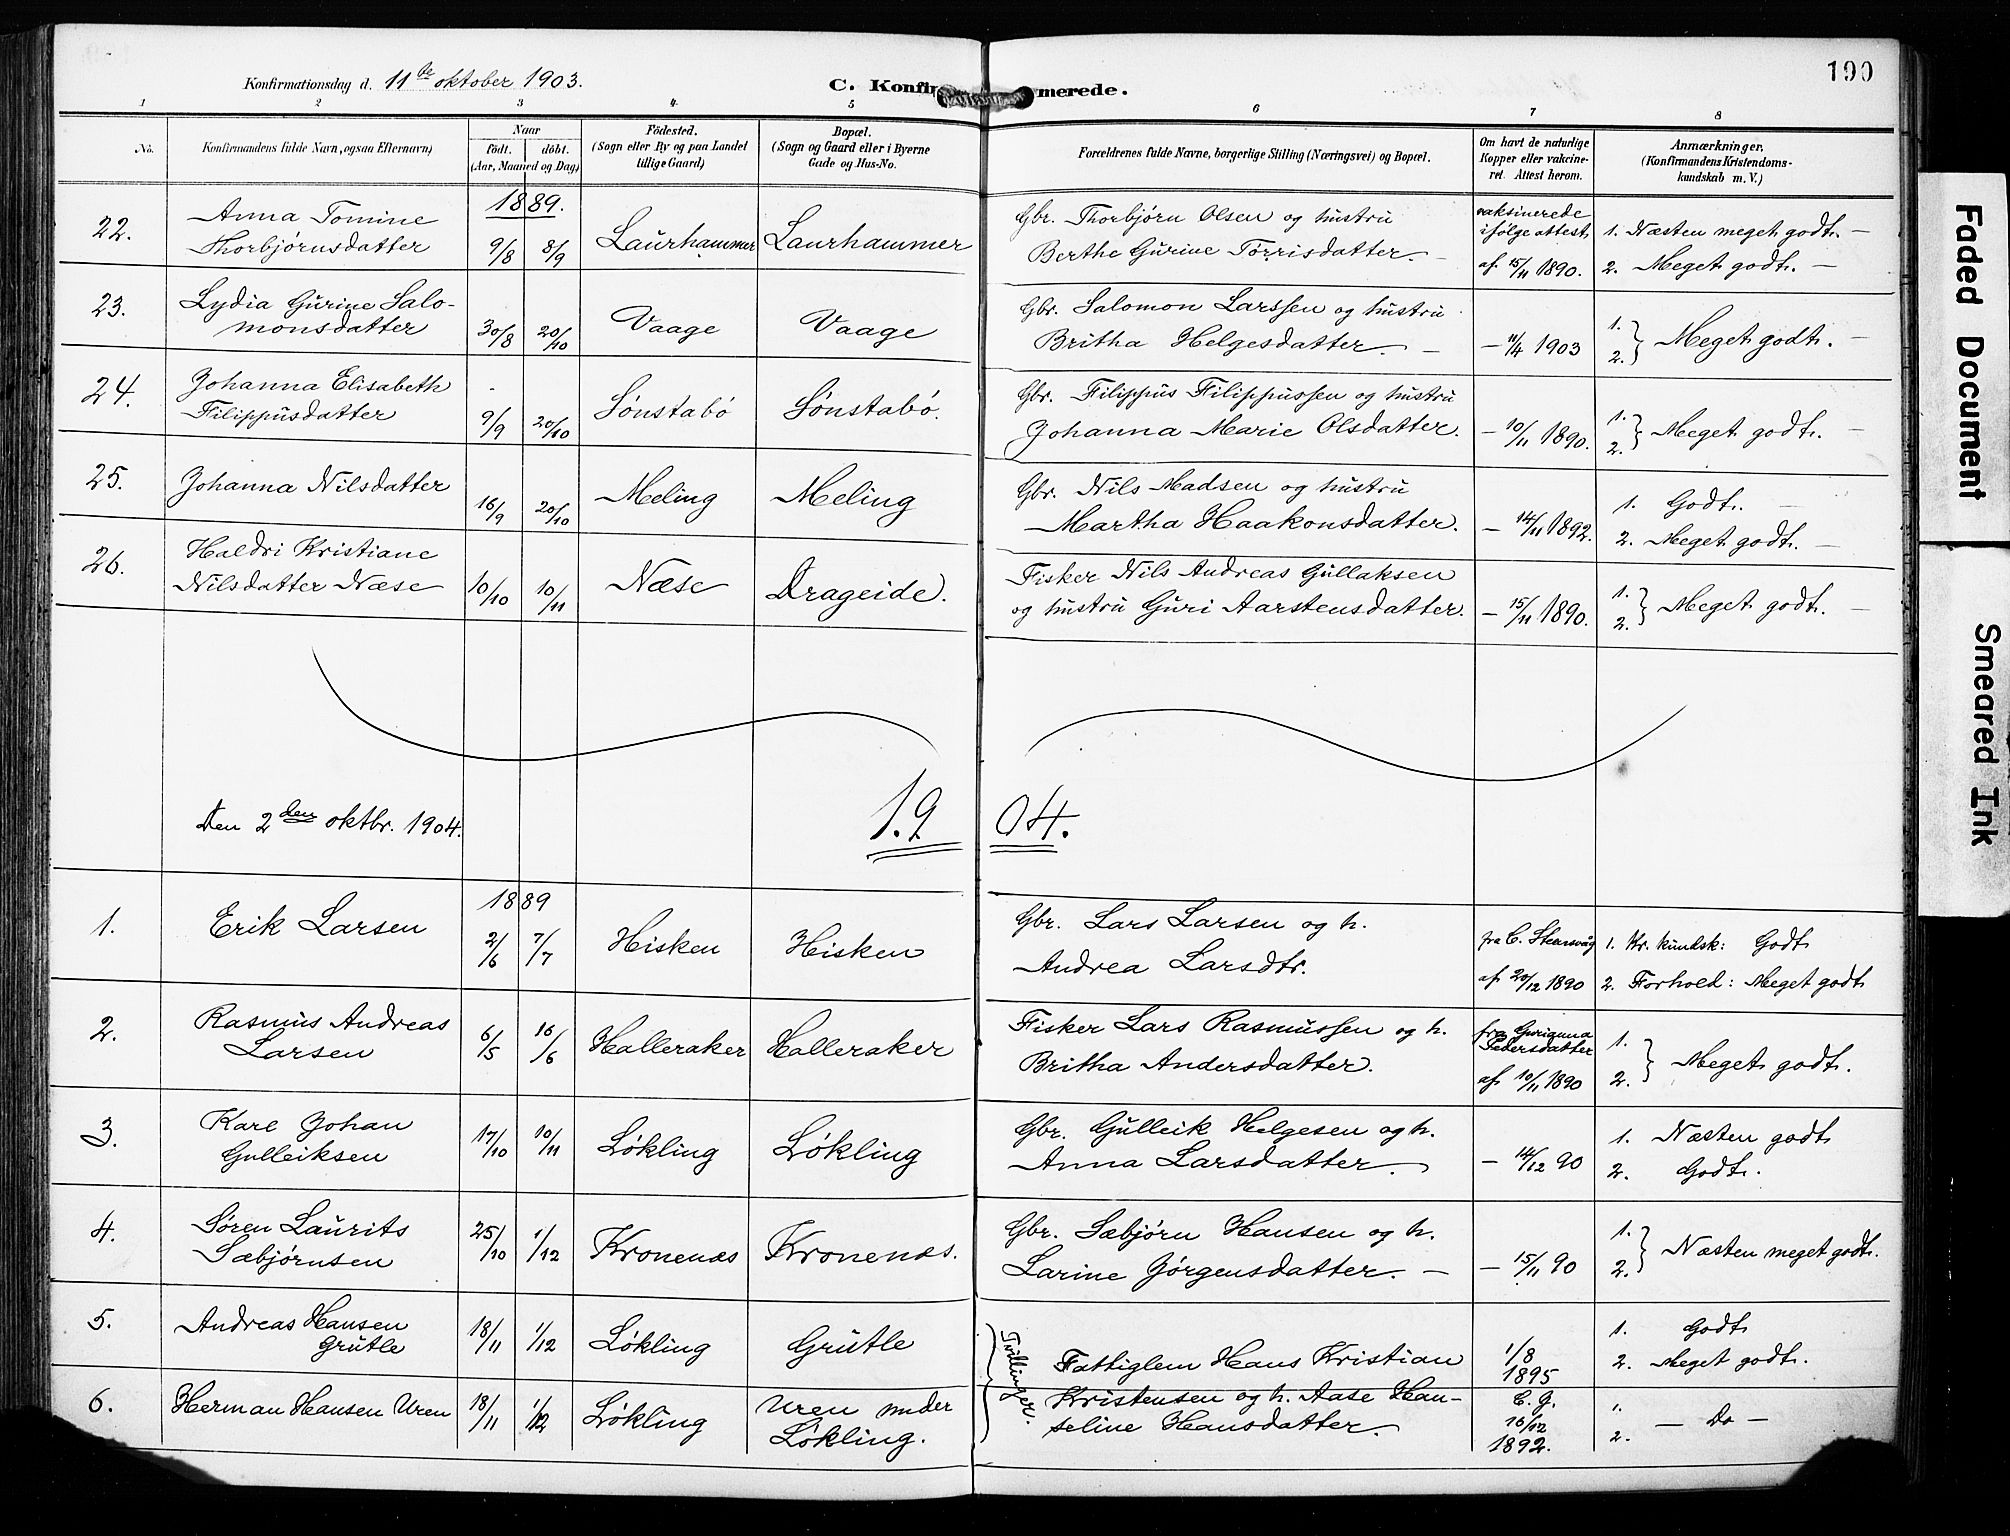 190
Konfirmationsdag d. 11te oktober 1903.
C. Konfir merede.
1 2 3 4 5 6 7 8
No.
Konfirmandens fulde Navn, ogsaa Efternavn)
Naar
født. døbt.
(Aar, Maaned og Dag)
Födested.
(Sogn eller By og paa Landet
tillige Gaard)
Bopæl.
(Sogn og Gaard eller i Byerne
Gade og Hus-No.
Forældrenes fulde Navne, borgerlige Stilling (Næringsvei) og Bopæl.
Om havt de naturlige
Kopper eller vakcine-
ret. Attest herom.
Anmærkninger.
(Konfirmandens Kristendoms-
kundskab m. V.)
1889.
22. Anna Tomine
Thorbjørnsdatter
9/8 8/9 Laurhammer Laurhammer
Gbr. Thorbjørn Olsen og hustru
Berthe Gurine Tørrisdatter. —
vaksinerede
ifølge attest
af 15/11 1890.
1. Næsten meget godt. —
2. Meget godt. —
23. Lydia Gurine Salo-
monsdatter
30/8 20/10 Vaage Vaage
Gbr. Salomon Larssen og hustru
Britha Helgesdatter. —
— 11/4 1903
1.
2. } Meget godt. —
24. Johanna Elisabeth
Filippusdatter
9/9 20/10 Sønstabø Sønstabø.
Gbr. Filippus Filippussen og hustru
Johanna Marie Olsdatter.
— 10/11 1890.
1.
2. } Meget godt. —
25. Johanna Nilsdatter
16/9 20/10 Meling Meling
Gbr. Nils Madsen og hustru
Martha Haakonsdatter.
— 14/11 1892.
1. Godt. —
2. Meget godt. —
26. Haldri Kristiane
Nilsdatter Næse
10/10 10/11 Næse Drageide.
Fisker Nils Andreas Gullaksen
og hustru Guri Aarstensdatter.
— 15/11 1890.
1.
2. } Meget godt. —
Den 2den oktbr. 1904.
19 04.
1889
1. Erik Larsen
2/6 7/7 Hisken Hisken
Gbr. Lars Larsen og h.
Andrea Larsdtr.
fra C. Steensvåg
af 20/12 1890
1. Kr. kundsk: Godt
2. Forhold: Meget godt
2. Rasmus Andreas
Larsen
6/5 16/6 Halleraker Halleraker
Fisker Lars Rasmussen og h.
Britha Andersdatter.
fra Gurianna
Pedersdatter
af 10/11 1890
1.
2. } Meget godt.
3. Karl Johan
Gulleiksen
17/10 10/11 Løkling Løkling
Gbr. Gulleik Helgesen og h.
Anna Larsdatter.
— 14/12 90
1. Næsten godt
2. Godt.
4. Søren Laurits
Sæbjørnsen
25/10 1/12 Kronenæs Kronenæs.
Gbr. Sæbjørn Hansen og h.
Larine Jørgensdatter. —
— 15/11 90
1.
2. } Næsten meget godt.
5. Andreas Hansen
Grutle
18/11 1/12 Løkling Grutle
Tvillinger.
Fattiglem Hans Kristian
1/8
1895
1. Godt
2. Meget godt.
6. Herman Hansen Uren
18/11 1/12 Løkling Uren under
Løkling.
Kristensen og h. Aase Han-
seline Hansdatter.
C. G.
16/12
1892.
1.
2. — Do —
Faded Document
Smeared Ink